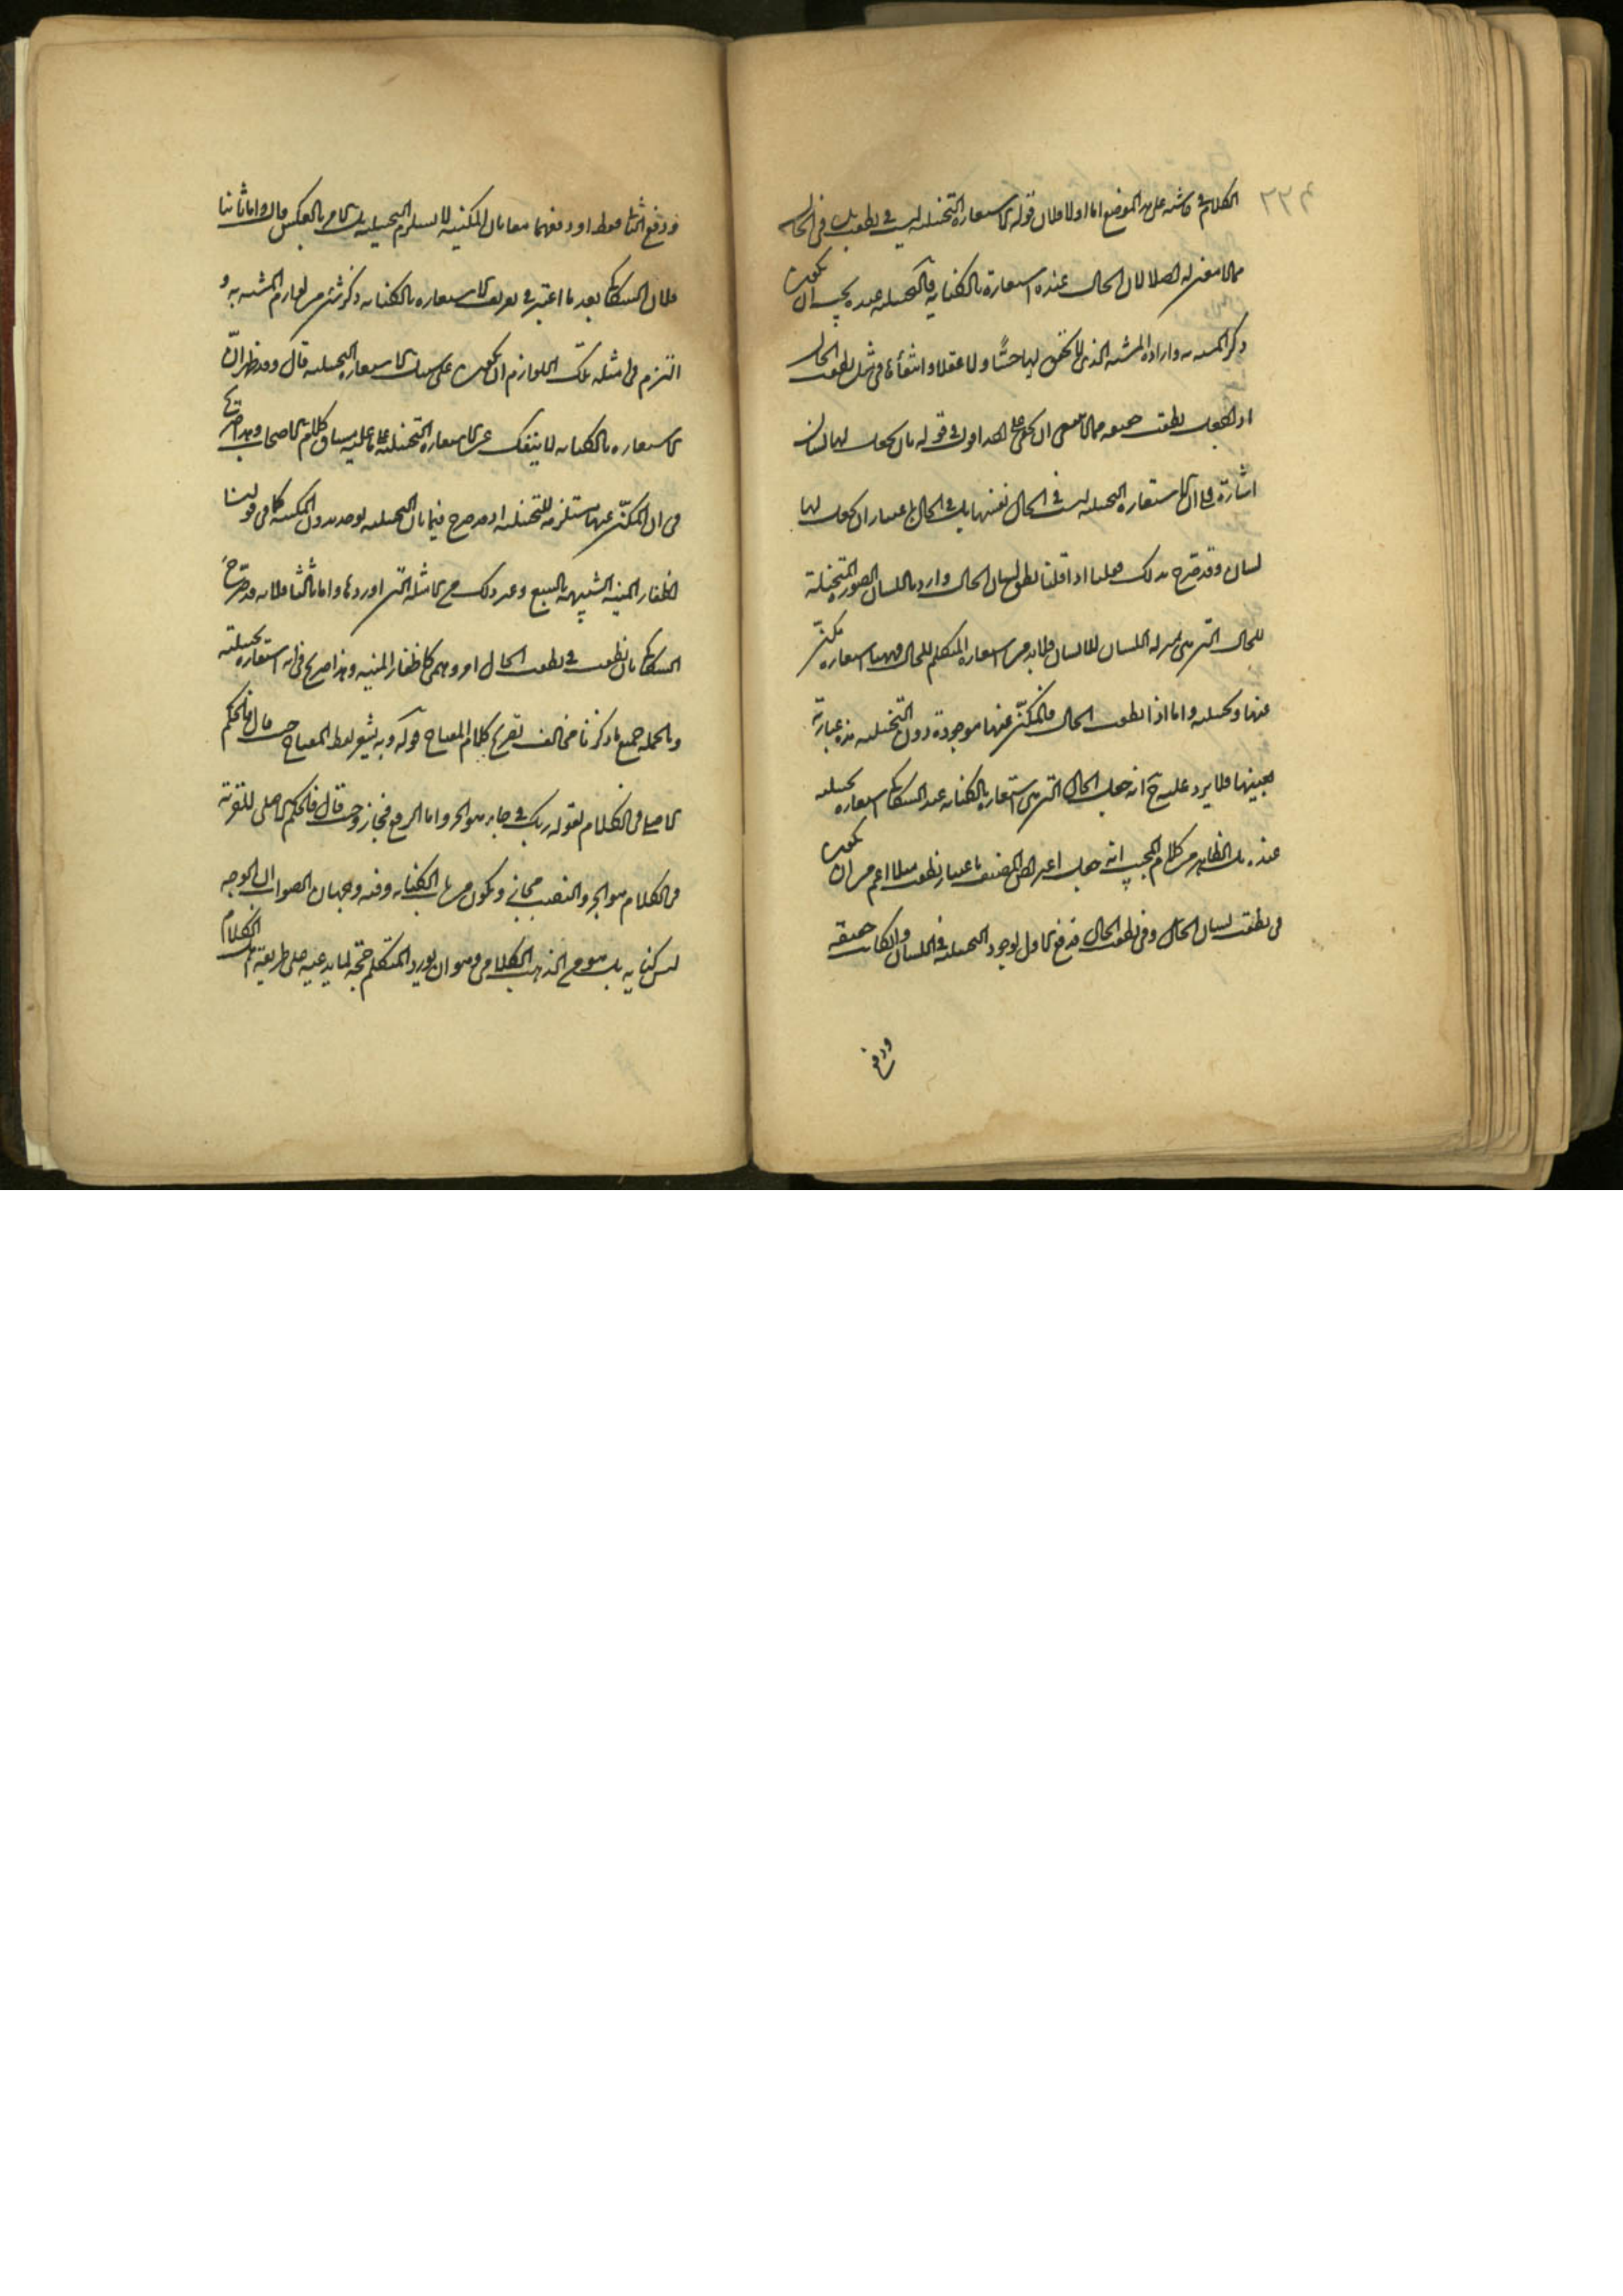 الكلام في حاشية على هذا الموضع اما اولا فلان قوله الاستعارة التخييلية ليست في نطقت بل في الحال
مما لا معنى له اصلا لان الحال عنده استعارة بالكناية والتخييلية عنده يجب ان يكون
ذكر المشبه به وارادة المشبه الذي لا تحقق لها حسًّا ولا عقلا وانتفاؤها في مثل نطقت الحال
اذا جعلت نطقت حقيقة مما لا ينبغي ان يخفى على احد اقول في قوله بان يجعل لها لسان
اشارة الى ان الاستعارة التخييلية ليست في الحال نفسها بل في الحال باعتبار ان يجعل لها
لسان وقد صرح بذلك فيما اذا قلنا نطق لسان الحال واريد باللسان الصور المتخيلة
للحال التي هي بمنزلة اللسان للانسان فلا بد من استعارة المتكلم للحال فههنا استعارة مكنى
عنها وتخييلية واما اذا نطقت الحال فالمكنى عنها موجودة دون التخييلية هذه عبارته
بعينها فلا يرد عليه ح انه جعل الحال التي هي استعارة بالكناية عند السكاكي استعارة تخييلية
عنده بل الظاهر من كلام المجيب انه جعل اعتراض المصنف باعتبار نطقت مثلا اعم من ان يكون
في نطقت لسان الحال وفي نطقت الحال فدفع الاول بوجود التخييلية في اللسان وان كانت حقيقة
ودفع
ودفع الثاني فقط او دفعهما معا بان المكنية لا يستلزم التخييلية بل الامر بالعكس قال واما ثانيا
فلان السكاكي بعد ما اعتبر في تعريف الاستعارة بالكناية ذكر شيء من لوازم المشبه به و
التزم في امثلة تلك اللوازم ان يكون على سبيل الاستعارة التخييلية قال وقد ظهر ان
الاستعارة بالكناية لا ينفك عن الاستعارة التخييلية على ما عليه سياق كلام الاصحاب وهذا صريح
في ان المكنى عنها مستلزمة للتخييلية اذ قد صرح فيما بان التخييلية توجد بدون المكنية كما في قولنا
اظفار المنية الشبيهة بالسبع وغير ذلك من الامثلة التي اوردها واما ثالثا فلانه قد صرح
السكاكي بان نطقت في نطقت الحال امر وهمي كاظفار المنية وهذا صريح في انه استعارة تخييلية
وبالجملة جميع ما ذكر ناش مخالف لصريح كلام المفتاح قوله وبه يشعر لفظ المفتاح حيث قال فالحكم
الاصلي في الكلام لقوله ربك في جاء ربك هو الجر واما الرفع فمجاز وحيث قال فالحكم الاصلي للقرية
في الكلام هو الجر والنصب مجاز ويكون من باب الكناية وفيه وجهان الصواب ان الوجه
ليس كناية بل هو من المذهب الكلامي وهو ان يورد المتكلم حجة لما يدعيه على طريقة اهل الكلام